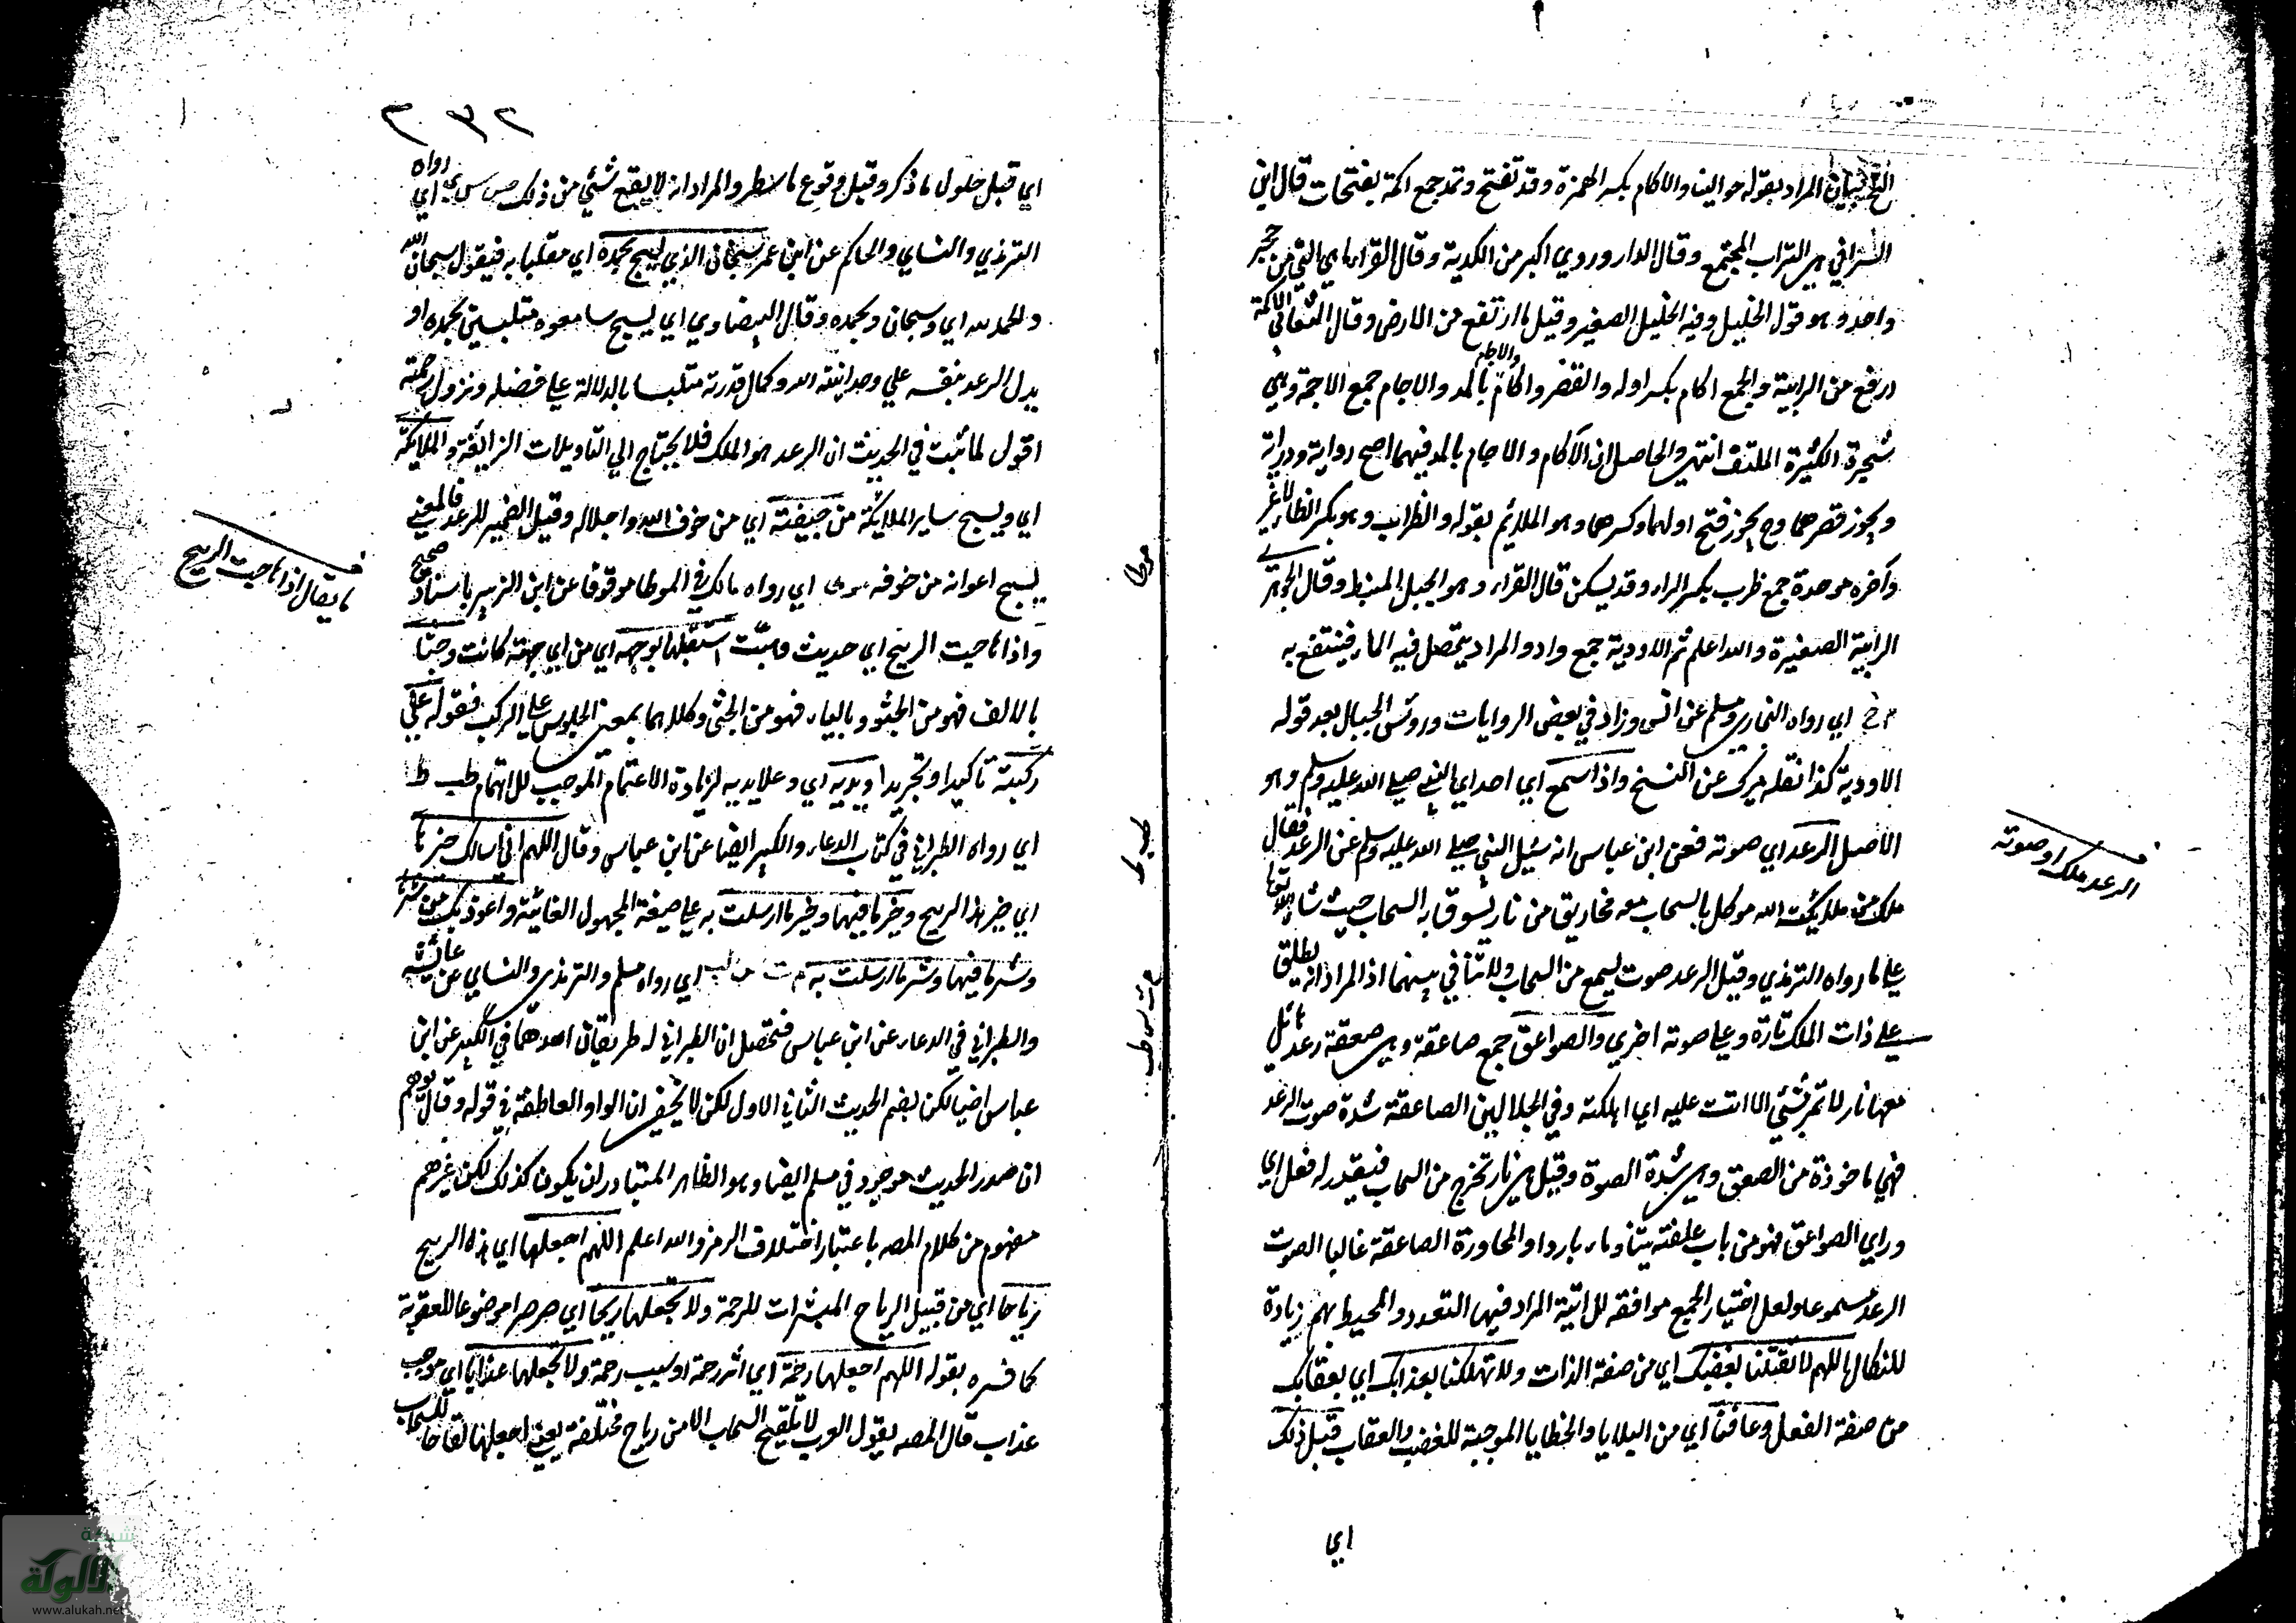 الخ بيان المراد بقوله حوالينا والاكام بكسر الهمزة وقد تفتح وتمد جمع اكمة بفتحات قال ابن
هي التراب المجتمع وقال الداوردي اكبر من الكدية وقال القزاز هي التي من حجر
واحد وهو قول الخليل وفيه الخليل الصغير وقيل ما ارتفع من الارض وقال الثعالبي الاكمة
ارفع من الرابية والجمع اكام بكسر اوله والقصر واكام بالمد والاجام جمع الاجمة وهي
شجرة الكثيرة الملتف انتهى والحاصل ان الآكام والاجام بالمد فيهما اصح رواية ودراية
ويجوز قصرهما وح يجوز فتح اولهما وكسرهما وهو الملائم بقوله والظراب وهو بكسر الظاء
وآخره موحدة جمع ظرب بكسر الراء وقد يسكن قال القزاز وهو الجبل المنبسط وقال الجوهري
الرابية الصغيرة والله اعلم ثم الاودية جمع واد والمراد يتحصل فيه الماء فينتفع به
خ م اي رواه البخاري ومسلم عن انس وزاد في بعض الروايات ورؤس الجبال بعد قوله
الاودية كذا نقله ميرك عن النسخ واذا سمع اي احد اي النبي صلى الله عليه وسلم وهو
الاصل الرعد اي صوته فعن ابن عباس انه سئل النبي صلى الله عليه وسلم عن الرعد فقال
ملك من ملائكة الله موكل بالسحاب معه مخاريق من نار يسوق به السحاب حيث شاء الله
على ما رواه الترمذي وقيل الرعد صوت يسمع من السحاب ولا تنافي بينهما اذ المراد انه يطلق
على ذات الملك تارة وعلى صوته اخرى والصواعق جمع صاعقة وهي صعقة رعد هائل
معها نار لا تمر بشئ الا اتت عليه اي اهلكته وفي الجلالين الصاعقة شدة صوت الرعد
فهي ماخوذة من الصعق وهي شدة الصوة وقيل هي نار تخرج من السحاب فيقدر له فعل اي
وراى الصواعق فهو من باب علفته تبنا وماء باردا والمحاورة الصاعقة غالبا الصوت
الرعد مسموعا ولعل اختيار الجمع موافقة للاتية المراد فيها التعدد والمحيط بهم زيادة
للنكال اللهم لا تقتلنا بغضبك اي من صفة الذات ولا تهلكنا بعذابك اي بعقابك
من صفة الفعل وعافنا اي من البلايا والخطايا الموجبة للغضب والعقاب قبل ذلك
اي
الرعد ملك او صوته
٢٣٢
اي قبل حلول ما ذكر وقبل وقوع ما سطر والمراد انه لا يقع شئ من ذلك ت س مس اي رواه
الترمذي والنساي والحاكم عن ابن عمر سبحان الذي يسبح بحمده اي متلبسا به فيقول سبحان الله
والحمد لله اي وسبحان وبحمده وقال البيضاوي اي يسبح سامعوه متلبسين بحمده او
يدل الرعد بنفسه على وحدانيته الله وكمال قدرته متلبسا بالدلالة على فضله ونزول رحمته
اقول لما ثبت في الحديث ان الرعد هو الملك فلا يحتاج الى التاويلات الزايغة والملايكة
اي ويسبح ساير الملائكة من خيفته اي من خوف الله واجلاله وقيل الضمير للرعد فالمعنى
يسبح اعوانه من خوفه مو طا اي رواه مالك في الموطا موقوفا عن ابن الزبير باسناد صحيح
واذا هاجت الريح اي حديث وهبت استقبلها بوجهه اي من اي جهة كانت وجثا
بالالف فهو من الجثو وبالياء فهو من الجثي وكلاهما بمعنى الجلوس على الركب فقوله على
ركبته تاكيد او تجريد او يديه اي وعلا يديه لزيادة الاعتمام الموجب للاهتمام طب ط
اي رواه الطبراني في كتاب الدعاء والكبير ايضا عن ابن عباس وقال اللهم اني اسالك خيرها
اي خير هذه الريح وخير ما فيها وخير ما ارسلت به على صيغة المجهول الغائبة واعوذ بك من شرها
وشر ما فيها وشر ما ارسلت به م ت س طب اي رواه مسلم والترمذي والنساي عن عائشة
والطبراني في الدعاء عن ابن عباس فتحصل ان الطبراني له طريقان احدهما في الكبير عن ابن
عباس ايضا لكن بضم الحديث الثاني الاول لكن لا يخفى ان الواو العاطفة في قوله وقال يوهم
ان صدر الحديث موجود في مسلم ايضا وهو الظاهر المتبادر ان يكون كذلك لكن غيرهم
مفهوم من كلام المص باعتبار اختلاف الرمز والله اعلم اللهم اجعلها اي هذه الريح
رياحا اي من قبيل الرياح المبشرات للرحمة ولا تجعلها ريحا اي صرصرا موضوعا للعقوبة
كما فسره بقوله اللهم اجعلها رحمة اي اثر رحمة او سبب رحمة ولا تجعلها عذابا اي موجب
عذاب قال المص يقول العرب لا تلقح السحاب الا من رياح مختلفة يعني اجعلها لقاحا للسحاب
ما يقال اذا هاجت الريح
موطا
طب ط
م ت س طب
شبكة
الألوكة
www.alukah.net